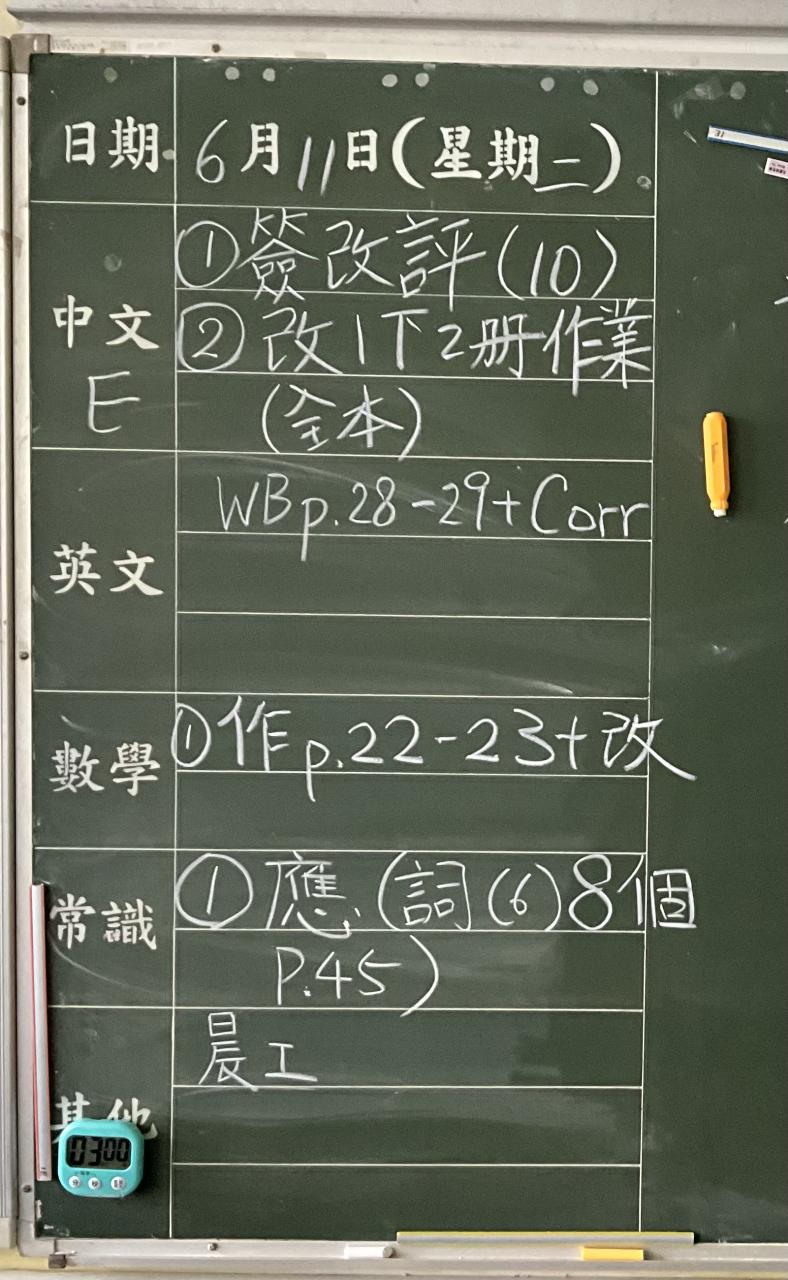 日期 6月11日(星期二)
①簽改評(10)
中文 ②改1下2册作業
E (全本)
WB p.28-29+Corr
英文
數學 ①作p.22-23+改
常識 ①應(詞(6)8個
P.45)
晨工
其他
03:00